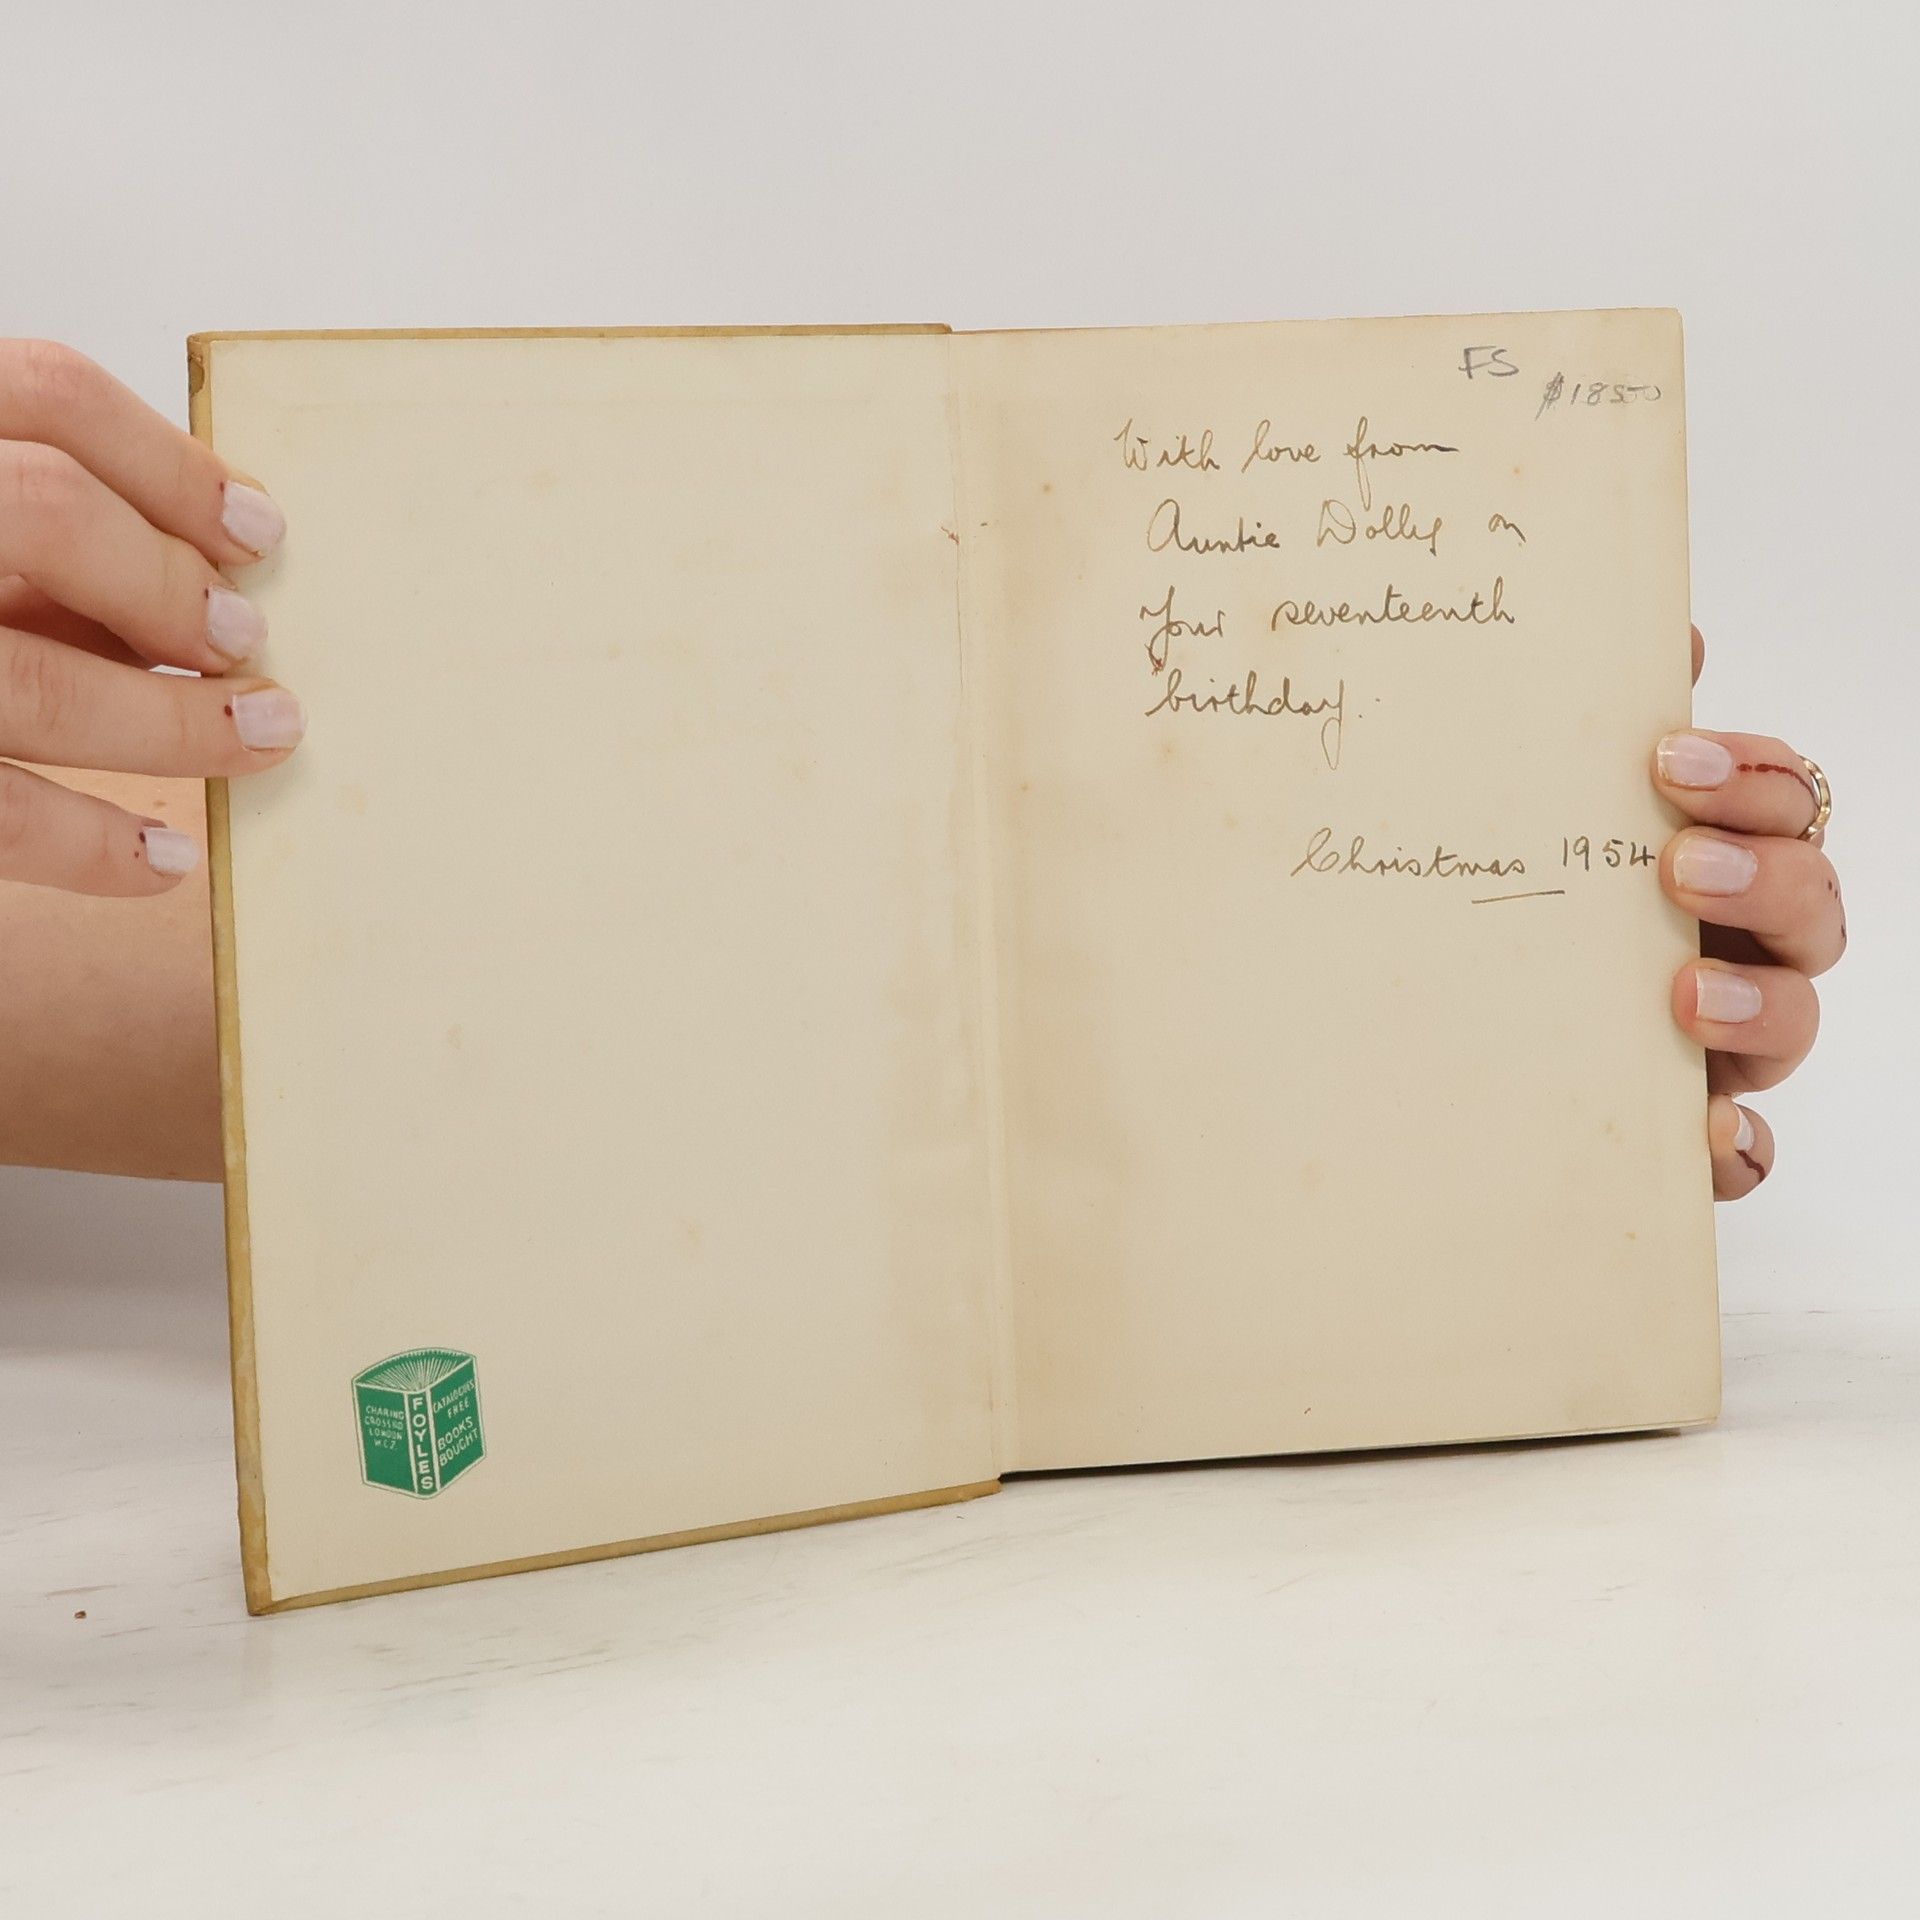 FS
$1850
With love from
Auntie Dolly on
your seventeenth
birthday.
Christmas 1954
CHARING
CROSS RD
LONDON
W.C.2.
FOYLES
CATALOGUES
FREE
BOOKS
BOUGHT